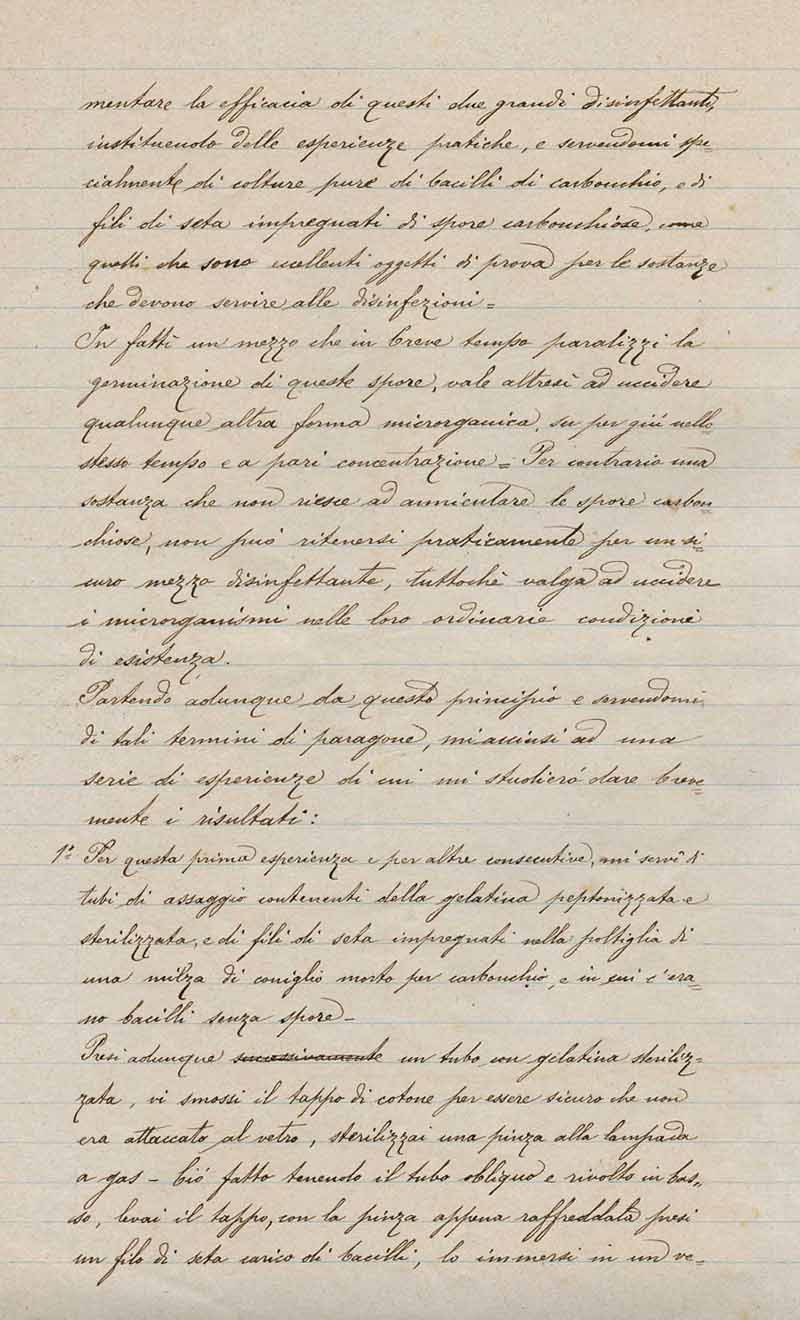 mentare la efficacia di questi due grandi disinfettanti,
instituendo delle esperienze pratiche, e servendomi spe=
cialmente di colture pure di bacilli di carbonchio, e di
fili di seta impregnati di spore carbonchiose, come
quelli che sono eccellenti oggetti di prova per le sostanze
che devono servire alle disinfezioni=
In fatti un mezzo che in breve tempo paralizzi la
germinazione di queste spore, vale altresì ad uccidere
qualunque altra forma microrganica, su per giù nello
stesso tempo e a pari concentrazione= Per contrario una
sostanza che non riesce ad annientare le spore carbon=
chiose, non può ritenersi praticamente per un si=
curo mezzo disinfettante, tuttochè valga ad uccidere
i microrganismi nelle loro ordinarie condizioni
di esistenza.
Partendo adunque da questo principio e servendomi
di tali termini di paragone, mi accinsi ad una
serie di esperienze di cui mi studierò dare breve=
mente i risultati:
1ª Per questa prima esperienza e per altre consecutive, mi servì di
tubi di assaggio contenenti della gelatina peptonizzata e
sterilizzata, e di fili di seta impregnati nella poltiglia di
una milza di coniglio morto per carbonchio, e in cui c'era=
no bacilli senza spore-
Presi adunque successivamente un tubo con gelatina steriliz=
zata, vi smossi il tappo di cotone per essere sicuro che non
era attaccato al vetro, sterilizzai una pinza alla lampada
a gas - Ciò fatto tenendo il tubo obliquo e rivolto in bas=
so, levai il tappo, con la pinza appena raffreddata presi
un filo di seta carico di bacilli, lo immersi in un ve=